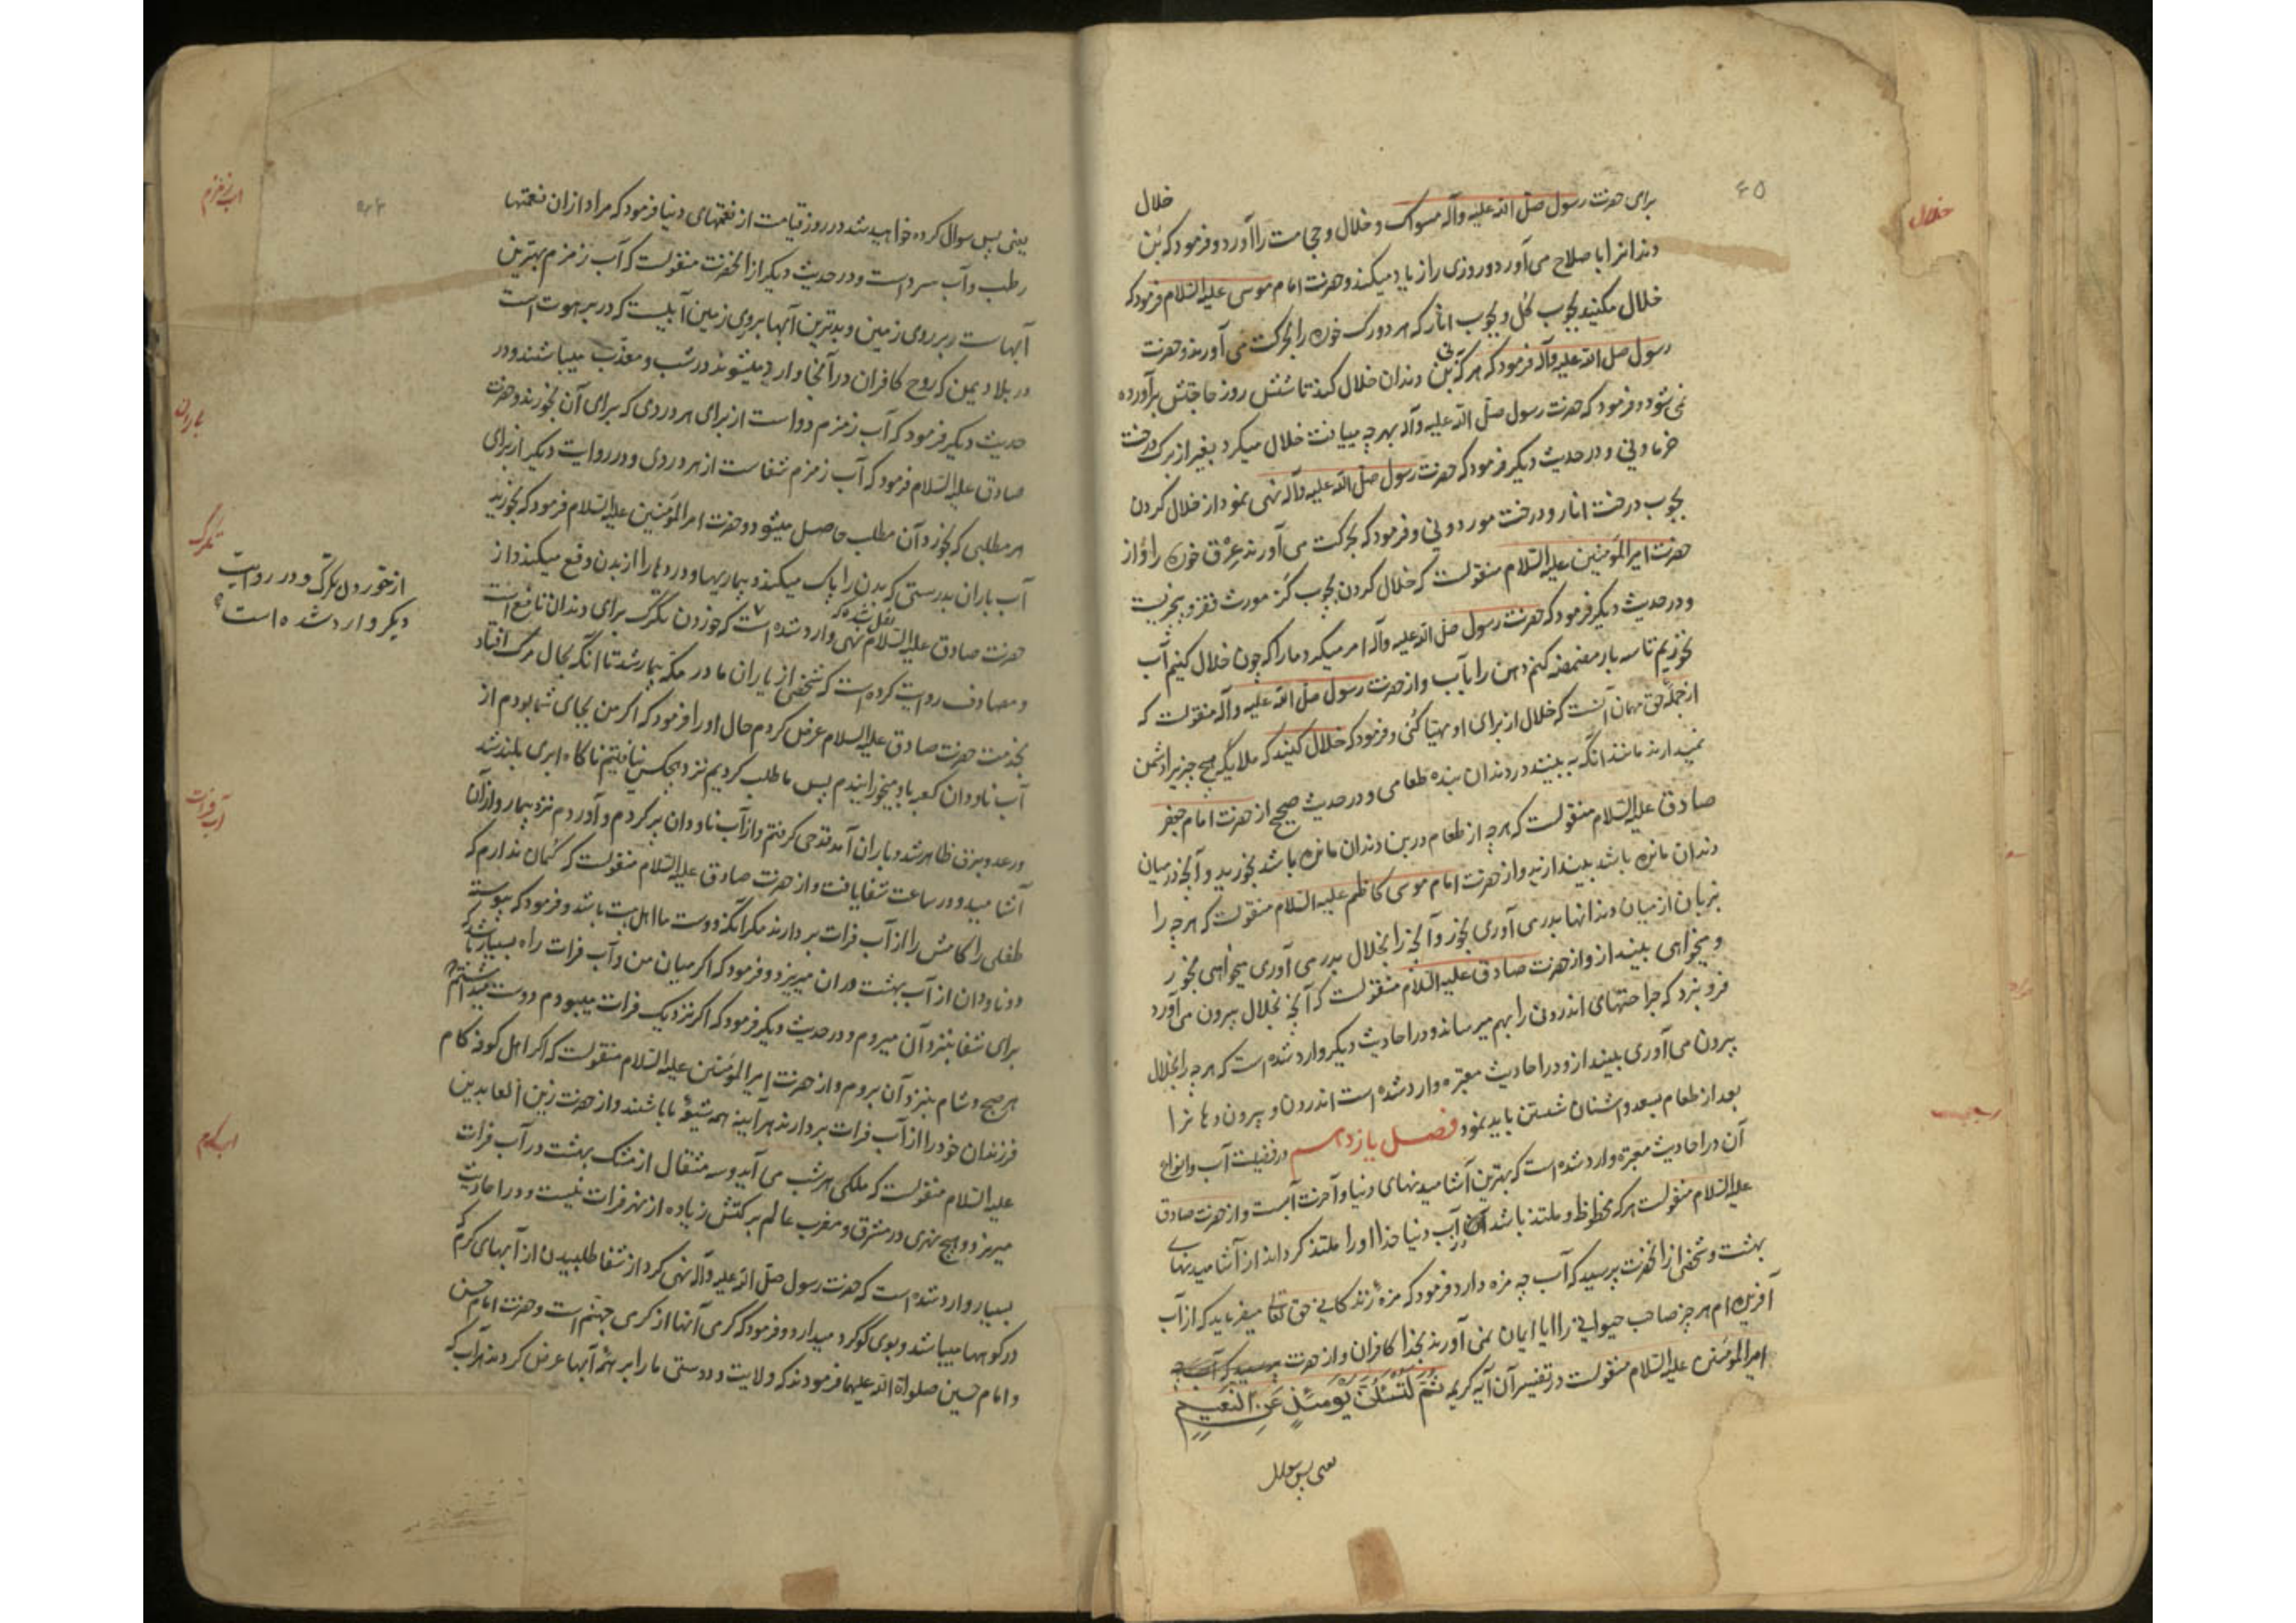 ۴۵
خلال
برای حضرت رسول صلی الله علیه وآله مسواک و خلال و حجامت را آورد و فرمود که بُن
دندانرا باصلاح می آورد و روزی را زیاد میکند و حضرت امام موسی علیه السلام فرمود که
خلال مکنید بچوب گل و بچوب انار که هر دو رک خوره را بحرکت می آورند و حضرت
رسول صلی الله علیه وآله فرمود که هر که بنی دندان خلال کند تا شش روز حاجتش برآورده
نمی شود و فرمود که حضرت رسول صلی الله علیه وآله بهرچه مییافت خلال میکرد بغیر از برک درخت
خرما و نی و در حدیث دیگر فرمود که حضرت رسول صلی الله علیه وآله نهی نمود از خلال کردن
بچوب درخت انار و درخت مورد و نی و فرمود که بحرکت می آورند عرق خوره را و از
حضرت امیر المؤمنین علیه السلام منقولست که خلال کردن بچوب گز مورث فقر و بیچیزیست
و در حدیث دیگر فرمود که حضرت رسول صلی الله علیه وآله امر میکرد ما را که چون خلال کنیم آب
نخوریم تا سه بار مضمضه کنیم دهن را بآب و از حضرت رسول صلی الله علیه وآله منقولست که
از جمله حق مهمان آنست که خلال از برای او مهیا کنی و فرمود که خلال کنید که ملایکه هیچ چیز را دشمن
نمیدارند مانند انکه به بینند در دندان بنده طعامی و در حدیث صحیح از حضرت امام جعفر
صادق علیه السلام منقولست که هرچه از طعام در بن دندان مانده باشد بخورید و آنچه در میان
دندان مانده باشد بیندازید و از حضرت امام موسی کاظم علیه السلام منقولست که هرچه را
بزبان از میان دندانها بدر می آوری بخور و آنچه را بخلال بدر می آوری میخواهی بخور
و میخواهی بینداز و از حضرت صادق علیه السلام منقولست که آنچه بخلال بیرون می آورد
فرو نبرد که جراحتهای اندرونی را بهم میرساند و در احادیث دیگر وارد شده است که هرچه را بخلال
بیرون می آوری بینداز و در احادیث معتبره وارد شده است اندرون و بیرون دهانرا
بعد از طعام بسعد و اشنان شستن باید نمود فصل یازدهم در فضیلت آب و انواع
آن در احادیث معتبره وارد شده است که بهترین آشامیدنیهای دنیا و آخرت آبست و از حضرت صادق
علیه السلام منقولست هرکه محظوظ و ملتذ باشد از آب دنیا خدا او را ملتذ گرداند از آشامیدنیهای
بهشت و شخصی از انحضرت پرسید که آب چه مزه دارد فرمود که مزه زندکانی حق تعالی میفرماید که از آب
آفریده ام هر چیز صاحب حیوانی را ایا ایمان نمی آورند بخدا کافران و از حضرت پرسید که آب چه
امیر المؤمنین علیه السلام منقولست در تفسیر آن آیه کریمه ثُمَّ لَتُسْئَلُنَّ يَوْمَئِذٍ عَنِ النَّعِيمِ
یعنی پس سوال
خلال
یعنی پس سوال کرده خواهید شد در روز قیامت از نعمتهای دنیا فرمود که مراد ازان نعمتها
رطب و آب سرد است و در حدیث دیکر از انحضرت منقولست که آب زمزم بهترین
آبهاست بر روی زمین و بدترین آبها بروی زمین آبیست که در برهوت است
در بلاد یمن که روح کافران در آنجا وارد میشوند در شب و معذب میباشند و در
حدیث دیکر فرمود که آب زمزم دواست از برای هر دردی که برای آن بخورند و حضرت
صادق علیه السلام فرمود که آب زمزم شفاست از هر دردی و در روایت دیکر از برای
هر مطلبی که بخورد آن مطلب حاصل میشود و حضرت امیر المؤمنین علیه السلام فرمود که بخورید
آب باران بدرستی که بدن را پاک میکند و بیماریها و دردها را از بدن دفع میکند و از
حضرت صادق علیه السلام نهی وارد شده است که خوردن تگرگ برای دندان نافع است
نقل شده که
و مصادف روایت کرده است که شخصی از یاران ما در مکه بیمار شد تا انکه بحال مرک افتاد
بخدمت حضرت صادق علیه السلام عرض کردم حال او را فرمود که اکر من بجای شما بودم از
آب ناودان کعبه باو میخورانیدم پس ما طلب کردیم نزد هیچکس نیافتیم ناکاه ابری بلند شد
و رعد و برق ظاهر شد و باران آمد قدحی کرفتم و از آب ناودان پر کردم و آوردم نزد بیمار و ازان
آشامید و در ساعت شفا یافت و از حضرت صادق علیه السلام منقولست که گمان ندارم که
طفلی را کامش را از آب فرات بردارند مکر انکه دوست ما اهل بیت باشد و فرمود که پیوسته
دو ناودان از آب بهشت دران میریزد و فرمود که اکر میان من و آب فرات راه بسیار باشد
برای شفا بنزد آن میروم و در حدیث دیکر فرمود که اکر نزدیک فرات میبودم دوست میداشتم که
هر صبح و شام بنزد آن بروم و از حضرت امیر المؤمنین علیه السلام منقولست که اکر اهل کوفه کام
فرزندان خود را از آب فرات بردارند هر آینه همه شیعه ما باشند و از حضرت زین العابدین
علیه السلام منقولست که ملکی هر شب می آید و سه مثقال از مشک بهشت در آب فرات
میریزد و هیچ نهری در مشرق و مغرب عالم برکتش زیاده از نهر فرات نیست و در احادیث
بسیار وارد شده است که حضرت رسول صلی الله علیه وآله نهی کرد از شفا طلبیدن از آبهای کرم که
در کوهها میباشد و بوی گوگرد میدارد و فرمود که کرمی آنها از کرمی جهنم است و حضرت امام حسن
و امام حسین صلواة الله علیهما فرمودند که ولایت و دوستی ما را بر همه آبها عرض کردند هر آب که
اب زمزم
باران
تگرگ
از خوردن تگرگ و در روایت
دیکر وارد شده است
آب فرات
اب کرم